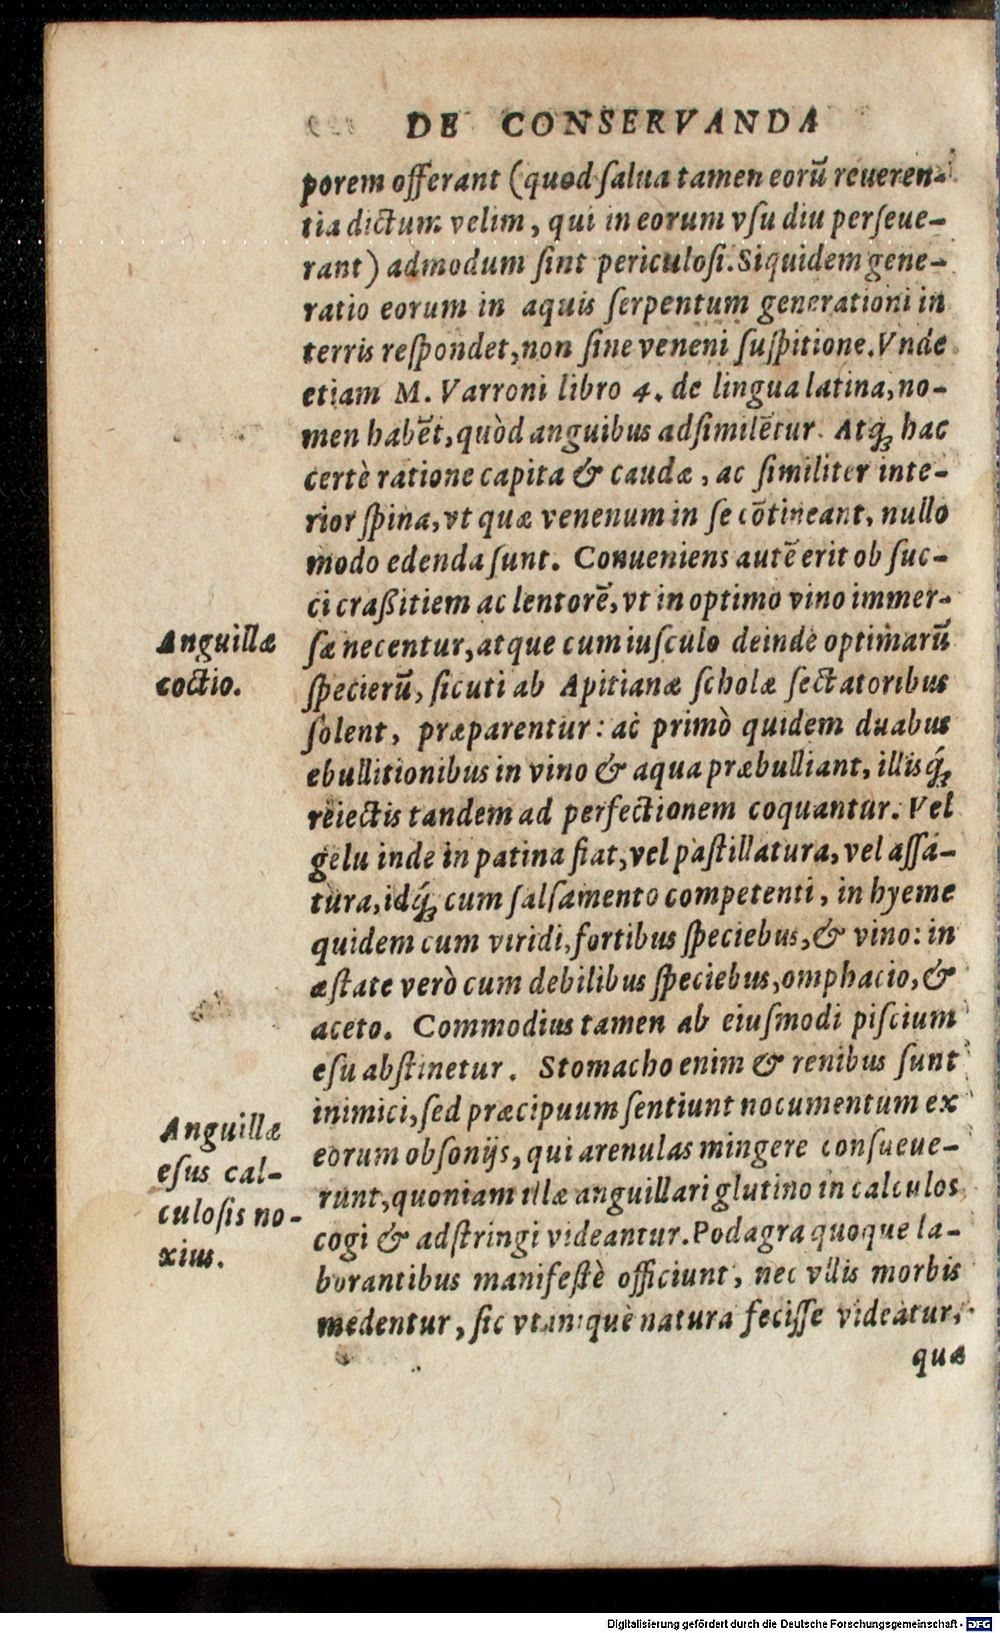 DE CONSERVANDA
porem offerant (quod ſalua tamen eorū reueren-
tia dictum velim, qui in eorum vſu diu perſeue-
rant) admodum ſint periculoſi. Siquidem gene-
ratio eorum in aquis ſerpentum generationi in
terris reſpondet, non ſine veneni ſuſpitione. Vnde
etiam M. Varroni libro 4. de lingua latina, no-
men habēt, quòd anguibus adſimilētur. Atq́ꝫ hac
certè ratione capita & caudæ, ac ſimiliter inte-
rior ſpina, vt quæ venenum in ſe cōtineant, nullo
modo edenda ſunt. Conueniens autē erit ob ſuc-
ci craßitiem ac lentorē, vt in optimo vino immer-
ſæ necentur, atque cum iuſculo deinde optimarū
ſpecierū, ſicuti ab Apitianæ ſcholæ ſectatoribus
ſolent, præparentur: ac primò quidem duabus
ebullitionibus in vino & aqua præbulliant, illisq́ꝫ
reiectis tandem ad perfectionem coquantur. Vel
gelu inde in patina fiat, vel paſtillatura, vel aſſa-
tura, idq́ꝫ cum ſalſamento competenti, in hyeme
quidem cum viridi, fortibus ſpeciebus, & vino: in
æſtate verò cum debilibus ſpeciebus, omphacio, &
aceto. Commodius tamen ab eiuſmodi piſcium
eſu abſtinetur. Stomacho enim & renibus ſunt
inimici, ſed præcipuum ſentiunt nocumentum ex
eorum obſonijs, qui arenulas mingere conſueue-
runt, quoniam illæ anguillari glutino in calculos
cogi & adſtringi videantur. Podagra quoque la-
borantibus manifeſtè officiunt, nec vllis morbis
medentur, ſic vtanque natura feciſſe videatur,
quæ
Anguillæ
coctio.
Anguillæ
eſus cal-
culoſis no-
xius.
Digitalisierung gefördert durch die Deutsche Forschungsgemeinschaft - DFG